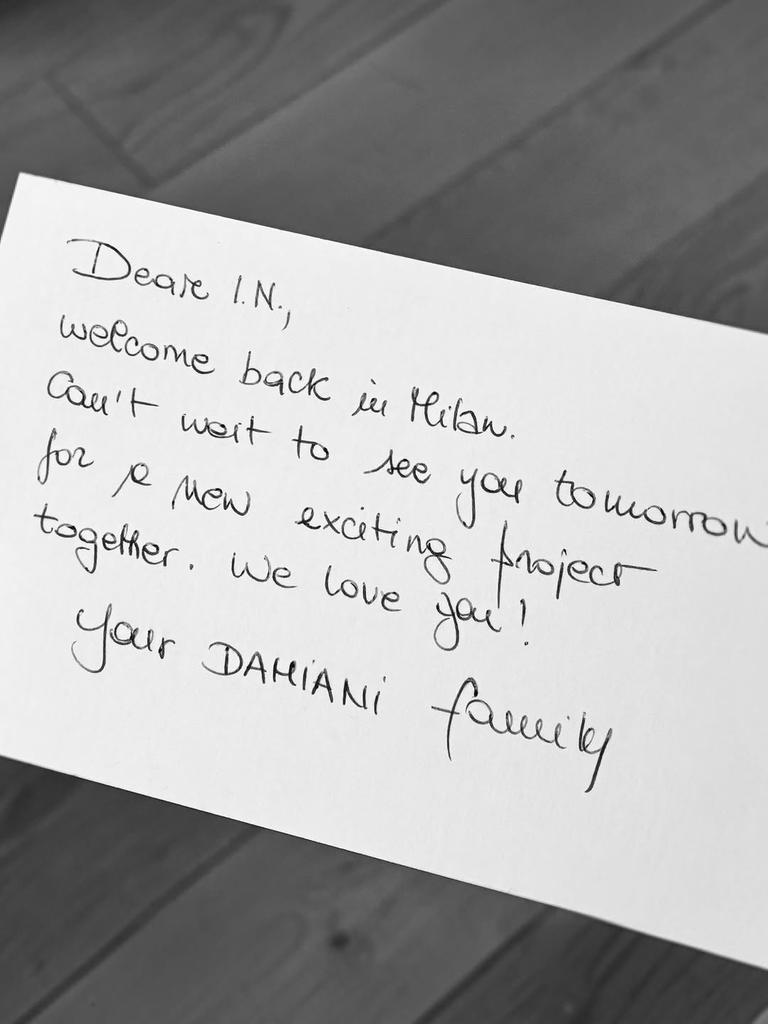 Dear I.N.,
welcome back in Milan.
Can't wait to see you tomorrow
for a new exciting project
together. We love you!
Your DAMIANI family